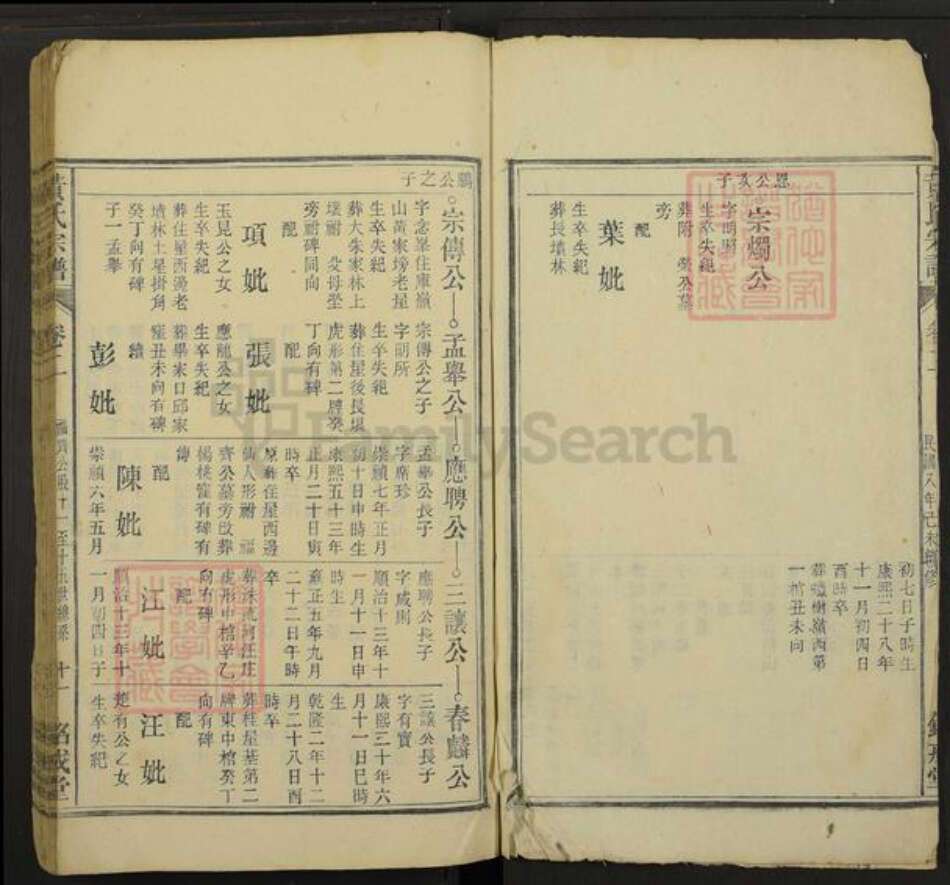 恩公次子
宗燭公
字明
生卒失紀
葬附 榮公墓
旁
配
葉妣
生卒失紀
葬長墳林
初七日子時生
康熙二十八年
十一月初四日
酉時卒
一棺丑未向
民國八年己未續修
鵬公之子
宗傳公
字念峯住庫嶺
山黃家塝老屋
生卒失紀
葬大朱家林上
壠祔 父母塋
旁祔碑同向
配
項妣
玉昆公之女
生卒失紀
葬住屋西灣老
墳林土星掛角
癸丁向有碑
子一孟舉
孟舉公
宗傳公之子
字明所
生卒失紀
葬住屋後長壠
虎形第二脾癸
丁向有碑
配
張妣
應龍公之女
生卒失紀
葬畢家口邱家
窪丑未向有碑
續
彭妣
應聘公
孟舉公長子
字席珍
崇禎七年正月
初十日申時生
康熙五十三年
正月二十日寅
時卒
原葬住屋西邊
仙人形祔 福
齊公墓旁改葬
楊桃窪有碑有
傳
配
陳妣
崇禎六年五月
三讓公
應聘公長子
字咸則
順治十三年十
一月十一日申
時生
雍正五年九月
二十二日午時
卒
葬洙流河汪庄
虎形中棺辛乙
向有碑
配
江妣
順治十三年十
一月初四日子
春麟公
三讓公長子
字有實
康熙三十年六
月十一日巳時
生
乾隆二年十二
月二十八日酉
時卒
葬桂屋基第二
牌東中棺癸丁
向有碑
配
汪妣
楚有公之女
生卒失紀
黃氏宗譜
卷二
十一